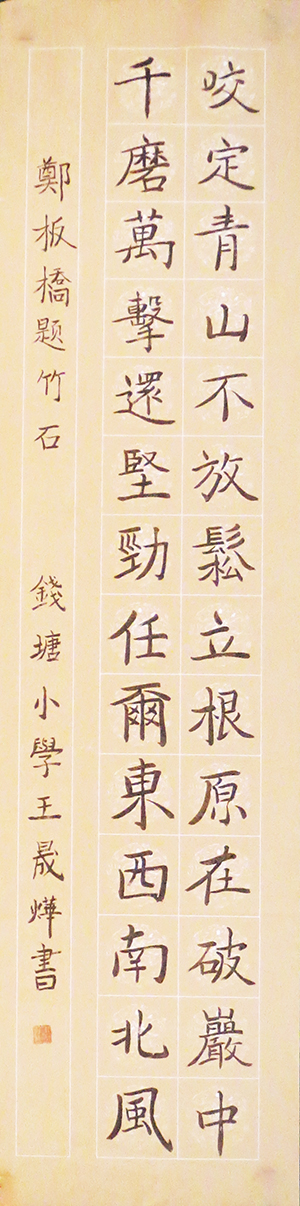 咬定青山不放鬆立根原在破巖中
千磨萬擊還堅勁任爾東西南北風
鄭板橋題竹石 錢塘小學王晟燁書